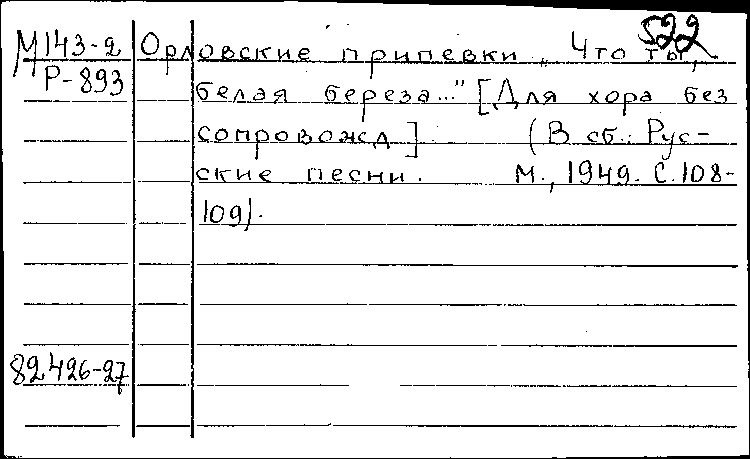 522
М143-2 Орловские припевки „Что ты,
Р-893
белая береза..." [Для хора без
сопровожд] (В сб.: Рус-
ские песни. М., 1949. С.108-
109).
82426-27